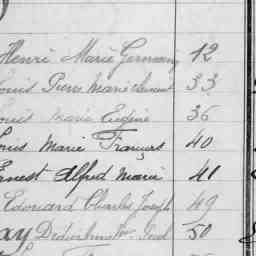 Henri Marie Germain 12
Louis Pierre Marie Clement 33
Louis Marie Eugène 36
Louis Marie François 40
Ernest Alfred Marie 41
Edouard Charles Joseph 49
Paul 50